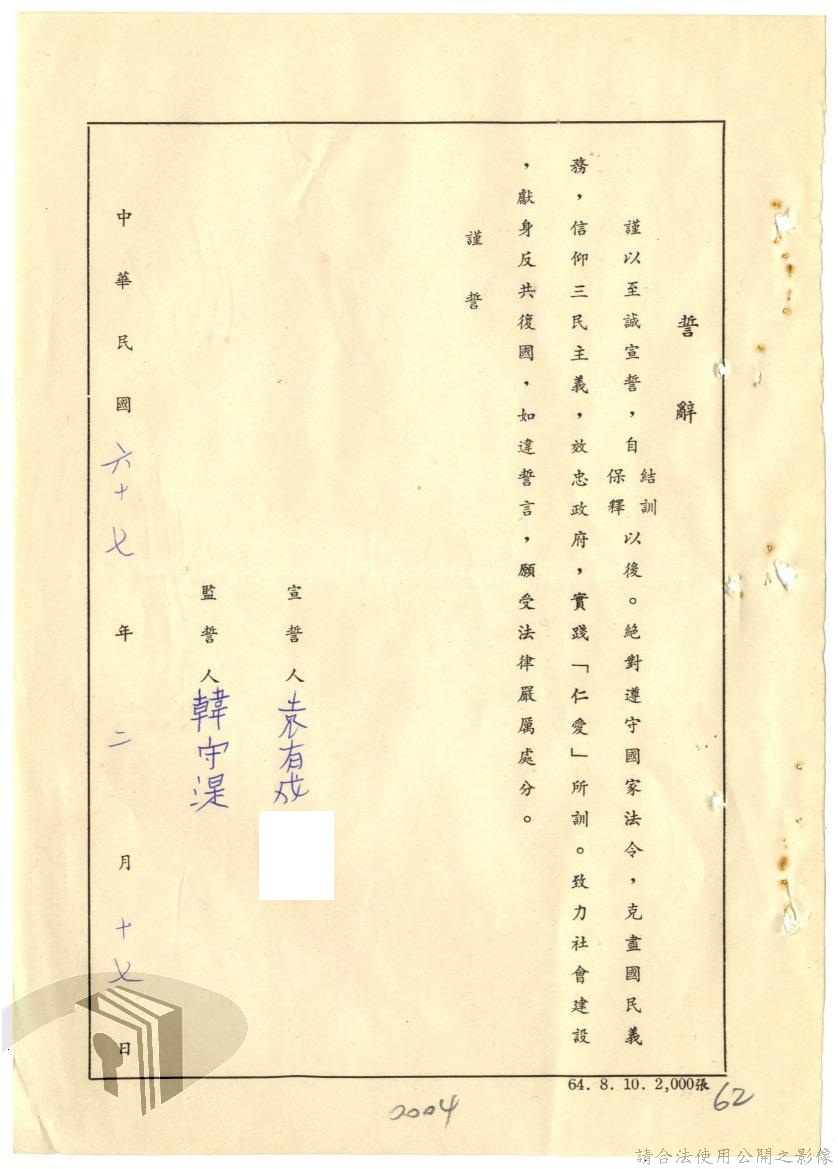 誓辭
謹以至誠宣誓，自結訓保釋以後。絕對遵守國家法令，克盡國民義
務，信仰三民主義，效忠政府，實踐「仁愛」所訓。致力社會建設
，獻身反共復國，如違誓言，願受法律嚴厲處分。
謹誓
宣誓人袁有成
監誓人韓守湜
中華民國六十七年二月十七日
64. 8. 10. 2,000張
62
2004
請合法使用公開之影像